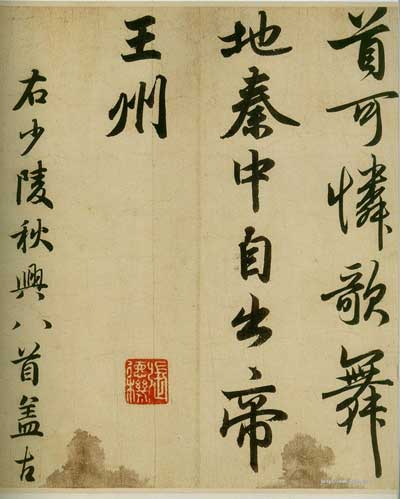 首可憐歌舞
地秦中自出帝
王州
右少陵秋興八首蓋古